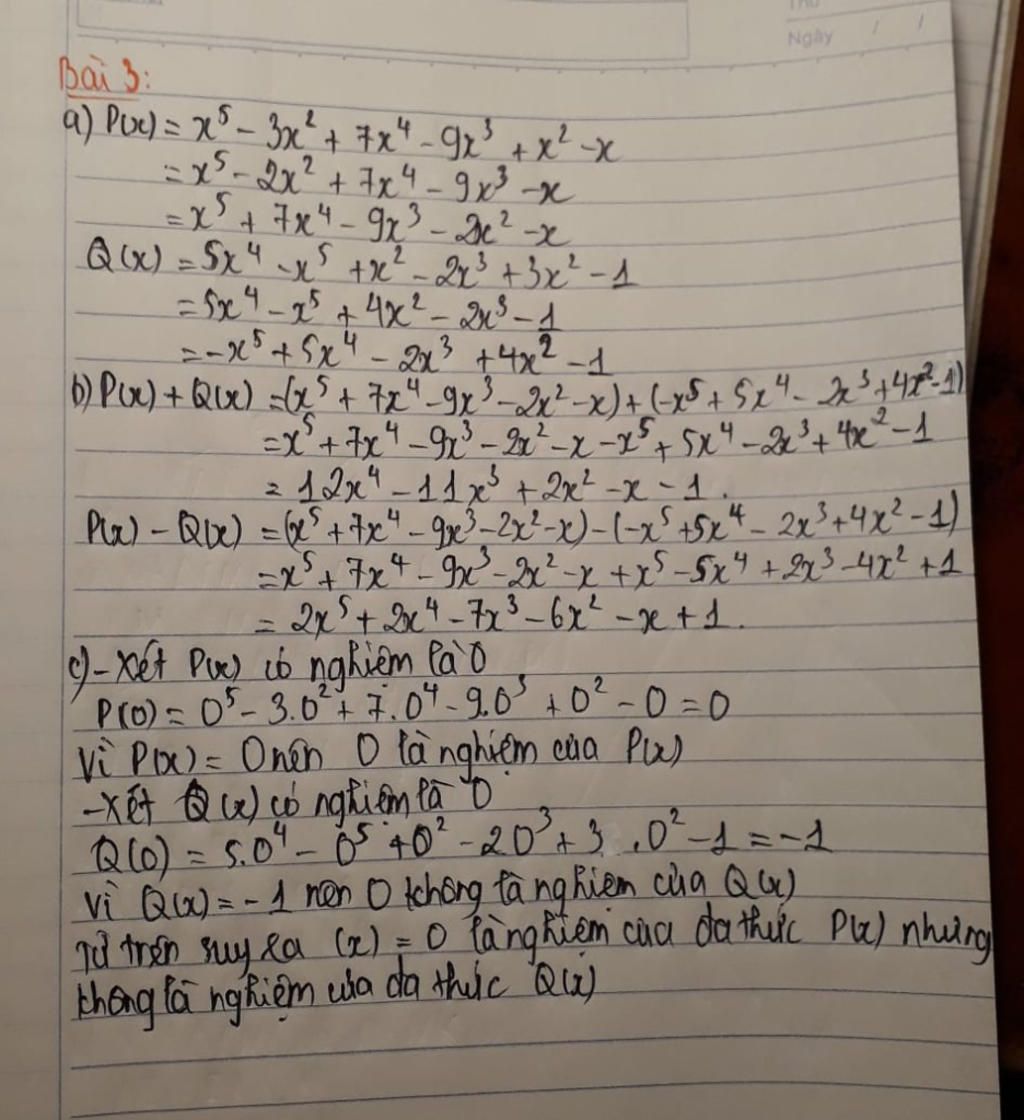 Thứ
Ngày / /
Bài 3:
a) P(x) = x⁵ - 3x² + 7x⁴ - 9x³ + x² - x
= x⁵ - 2x² + 7x⁴ - 9x³ - x
= x⁵ + 7x⁴ - 9x³ - 2x² - x
Q(x) = 5x⁴ - x⁵ + x² - 2x³ + 3x² - 1
= 5x⁴ - x⁵ + 4x² - 2x³ - 1
= -x⁵ + 5x⁴ - 2x³ + 4x² - 1
b) P(x) + Q(x) = (x⁵ + 7x⁴ - 9x³ - 2x² - x) + (-x⁵ + 5x⁴ - 2x³ + 4x² - 1)
= x⁵ + 7x⁴ - 9x³ - 2x² - x - x⁵ + 5x⁴ - 2x³ + 4x² - 1
= 12x⁴ - 11x³ + 2x² - x - 1.
P(x) - Q(x) = (x⁵ + 7x⁴ - 9x³ - 2x² - x) - (-x⁵ + 5x⁴ - 2x³ + 4x² - 1)
= x⁵ + 7x⁴ - 9x³ - 2x² - x + x⁵ - 5x⁴ + 2x³ - 4x² + 1
= 2x⁵ + 2x⁴ - 7x³ - 6x² - x + 1.
c) - Xét P(x) có nghiệm là 0
P(0) = 0⁵ - 3.0² + 7.0⁴ - 9.0³ + 0² - 0 = 0
Vì P(x) = 0 nên 0 là nghiệm của P(x)
- Xét Q(x) có nghiệm là 0
Q(0) = 5.0⁴ - 0⁵ + 0² - 20³ + 3.0² - 1 = -1
Vì Q(x) = -1 nen 0 không là nghiem của Q(x)
Từ trên suy ra (x) = 0 là nghiệm của đa thức P(x) nhưng
không là nghiệm của đa thức Q(x)